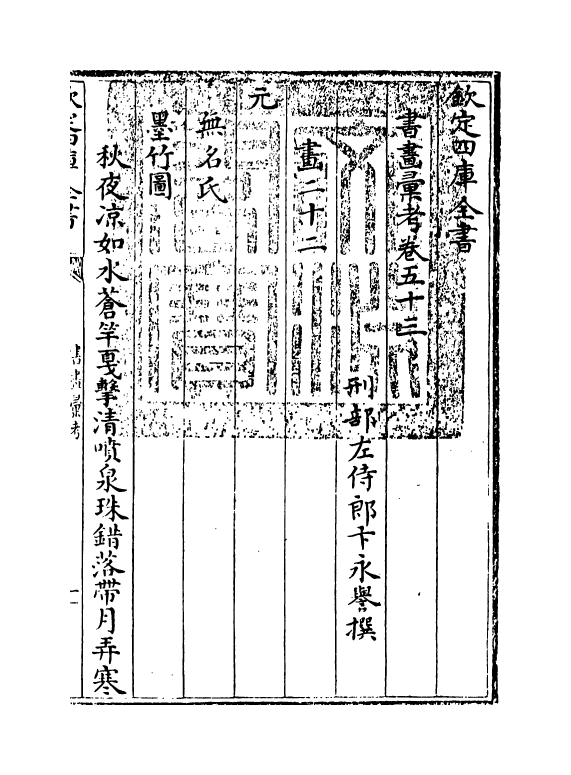 欽定四庫全書
書畫彙考卷五十三
刑部左侍郎卞永譽撰
畫二十二
元
無名氏
墨竹圖
秋夜凉如水蒼竿戛擊清噴泉珠錯落帶月弄寒